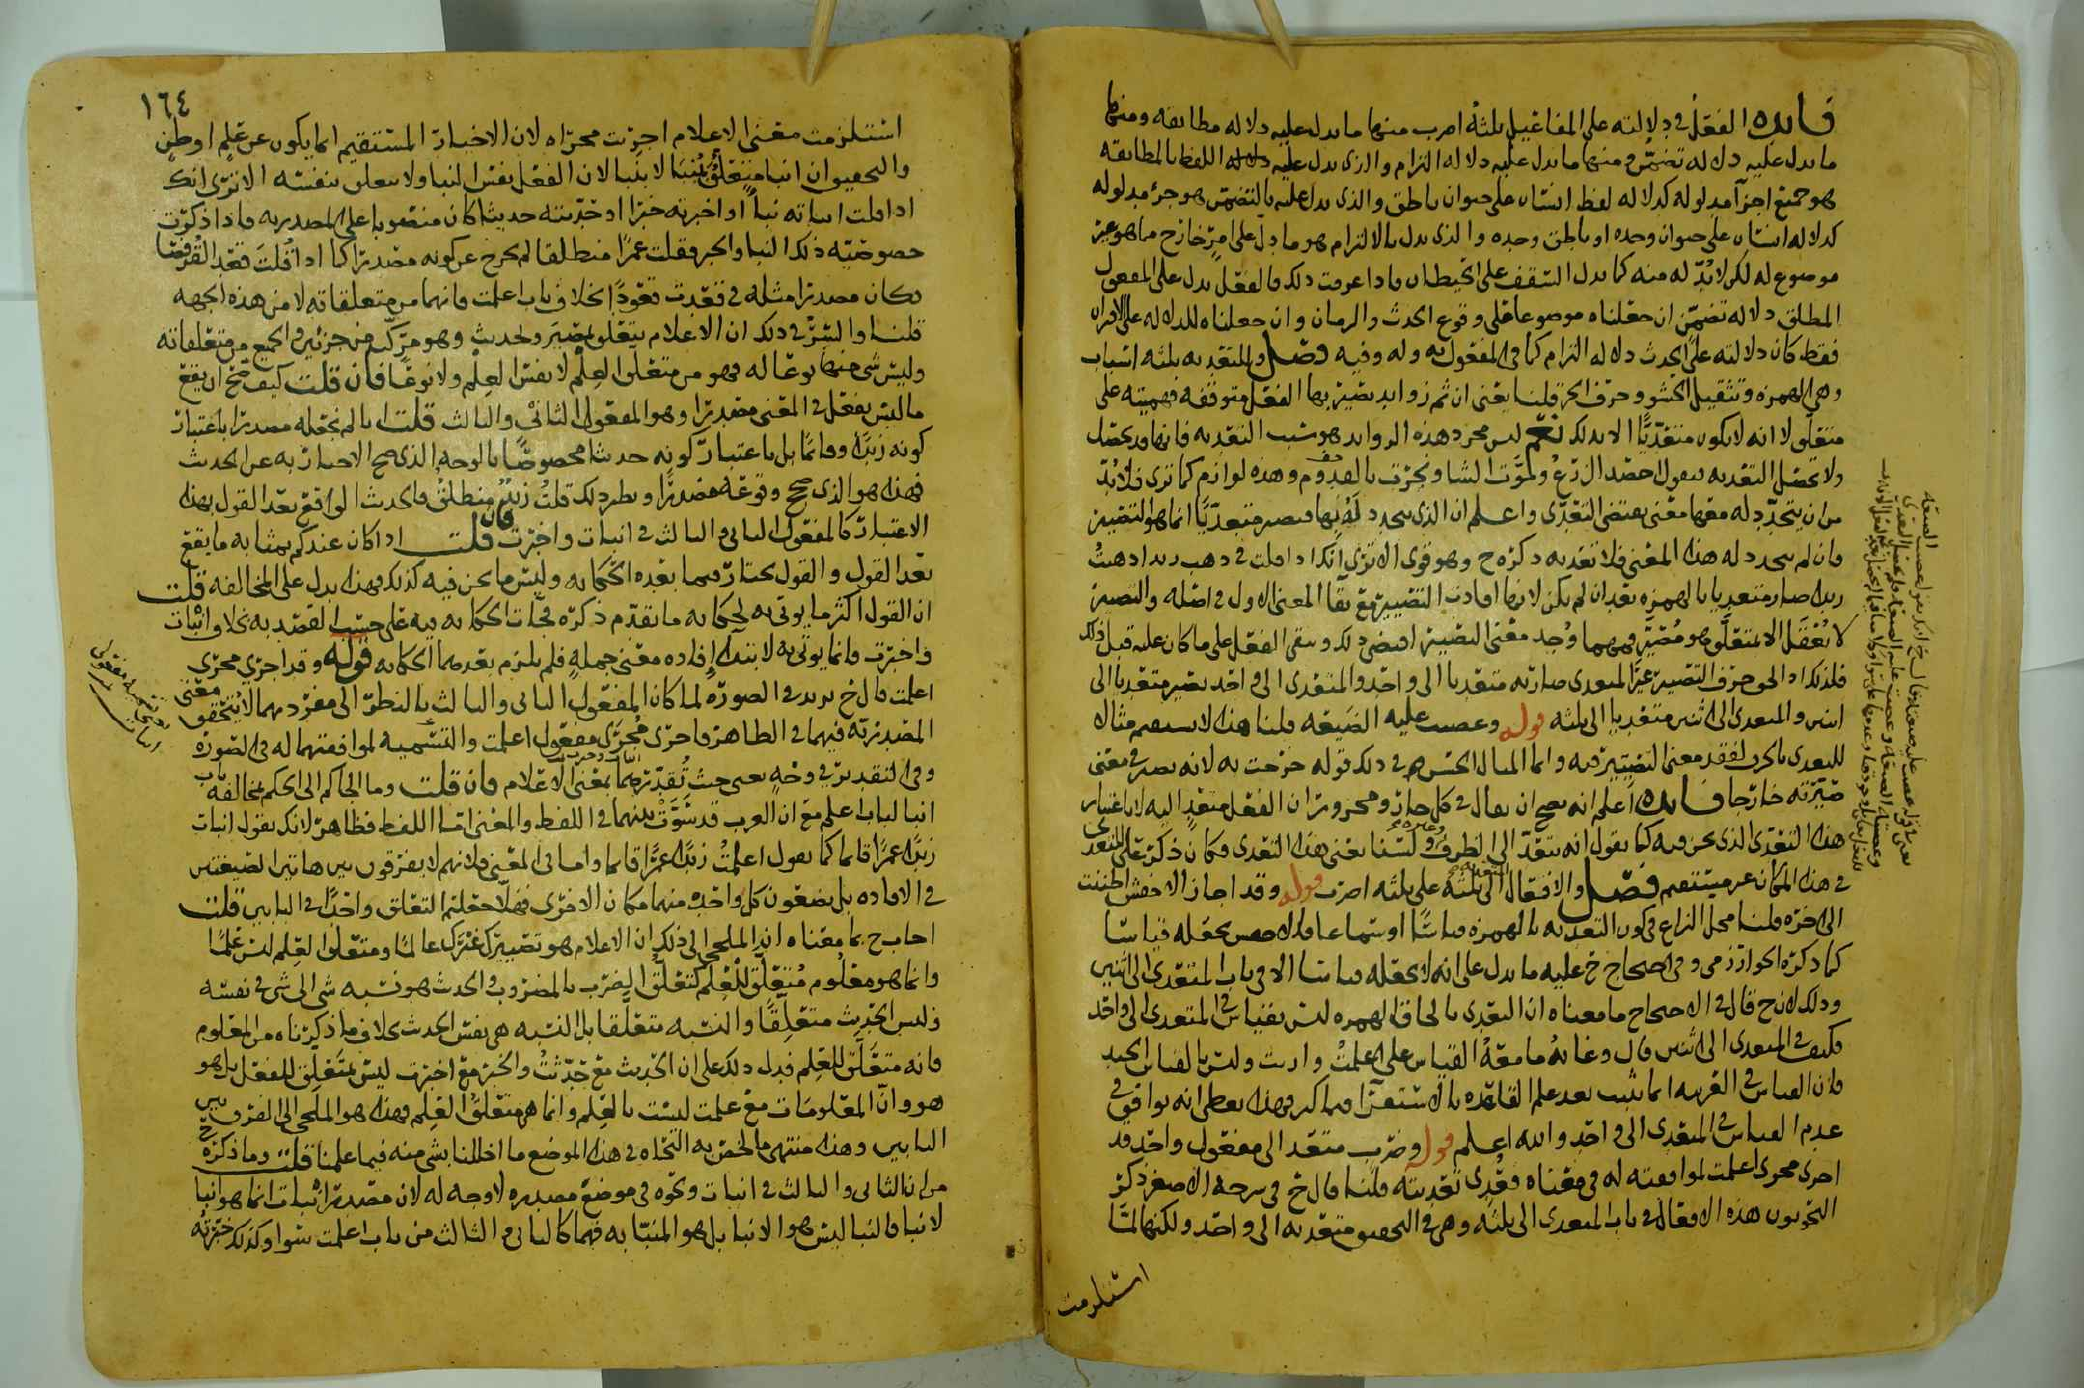 فايده الفعل في دلالته على المفاعيل ثلثة اضرب منها ما يدل عليه دلاله مطابقه ومنها
ما يدل عليه دلاله تضمن ومنها ما يدل عليه دلاله التزام والذي يدل عليه اللفظ بالمطابقه
هو جميع اجزآ مدلوله كدلاله لفظ انسان على حيوان ناطق والذي يدل عليه بالتضمن هو جزء مدلوله
كدلاله انسان على حيوان وحده او ناطق وحده والذي يدل بالالتزام هو ما دل على امر خارج ما هو غير
موضوع له لكن لا بد له منه كما يدل السقف على الحيطان فاذا عرفت ذلك فالفعل يدل على المفعول
المطلق دلاله تضمن ان جعلناه موضوعا على وقوع الحدث والزمان وان جعلناه للدلاله على الاقتران
فقط كان دلالته على الحدث دلاله التزام كما في المفعول به وله وفيه فصل والمتعديه ثلثه اسباب
وهي الهمزه وتثقيل الحشو وحرف الجر قلنا يعني ان ثم زوايد يصير بها الفعل متوقفه فهميته على
متعلق لا انه لا يكون متعديا الا بذلك نعم ليس مجرد هذه الزوايد هو سبب التعديه فانها قد تحصل
ولا تحصل التعديه تقول احصد الزرع وموتت الشا ونجرت بالقدوم وهذه لوازم كما ترى فلا بد
من ان يتجدد له معها معنى يقتضي التعدي واعلم ان الذي يتجدد له بها فيصير متعديا انما هو التصيير
فان لم يتجدد له هذا المعنى فلا تعديه ذكره ح وهو قوي الا ترى انك اذا قلت في ذهب زيد اذهبت
زيدا صار متعديا بالهمزه بعد ان لم يكن لانها افادت التصيير مع بقا المعنى الاول في اصله والتصيير
لا يعقل الا بمتعلق هو مصير فمهما وجد معنى التصيير اقتضى ذلك وبقي الفعل على ما كان عليه قبل ذلك
فلذلك اذا لحق حرف التصيير غير المتعدي صار به متعديا الى واحد والمتعدي الى واحد يصير متعديا الى
اثنين والمتعدي الى اثنين متعديا الى ثلثه قوله وغصبت عليه الضيعه قلنا هذا لا يستقيم مثالا
للمتعدي بالحرف لفقد معنى التصيير فيه وانما المثال الحسن في ذلك قوله خرجت به لانه يصير في معنى
صيرته خارجا فايده اعلم انه يصح ان يقال في كل جار ومجرور ان الفعل متعد اليه لا باعتبار
هذا التعدي الذي نحن فيه كما يقول انه يتعدى الى الظرف ولسنا نعني هذا التعدي فكان ذكره على المتعدي
في هذا المكان غير مستقيم فصل والافعال المتعديه الى ثلثه على ثلثه اضرب قوله وقد اجاز الاخفش اظننت
الى اخره قلنا محل النزاع في كون التعديه بالهمزه قياسا او سماعا فالاخفش يجعله قياسا
كما ذكره الخوارزمي وفي الصحاح خ عليه ما يدل على انه لا يجعله قياسا الا في باب المتعدي الى اثنين
وذلك لان ح قال في الاحجاج ما معناه ان التعدي بالحاق الهمزه ليس بقياس في المتعدي الى واحد
فكيف في المتعدي الى اثنين قال وغايه ما معه القياس على اعلمت واريت وليس بالقياس الجيد
فان القياس في العربيه انما يثبت بعد علم القاعده بالاستقرآ فيما كثر فهذا يعطى انه يوافق في
عدم القياس في المتعدي الى واحد والله اعلم قوله وضرب متعد الى مفعول واحد قد
اجري مجرى اعلمت لموافقته له في معناه فعدي تعديته قلنا قال خ في شرحه الاصغر ذكر
النحويون هذه الافعال في باب المتعدي الى ثلثه وهي في التحقيق متعديه الى واحد ولكنها لما
استلزمت
١٦٤
استلزمت معنى الاعلام اجريت مجراه لان الاخبار المستقيم انما يكون عن علم او ظن
والتحقيق ان انبا متعلق بنبا لا بنبا لان الفعل يفسر النبا ولا يتعلق بنفسه الا ترى انك
اذا قلت انباته نبأ او اخبرته خبرا او حدثته حديثا كان منصوبا على المصدريه فاذا ذكرت
خصوصيه ذلك النبا والخبر فقلت عمرا منطلقا لم يخرج عن كونه مصدرا كما اذا قلت قعد القرفصا
فكان مصدرا مثله في قعدت قعودا بخلاف باب اعلمت فانهما من متعلقاته لا من هذه الجهه
قلنا والسر في ذلك ان الاعلام يتعلق بمصير وحديث وهو مركب من جزئين والجميع من متعلقاته
وليس شي منها نوعا له فهو من متعلق العلم لا نفس العلم ولا نوعا فان قلت كيف صح ان يقع
ما ليس بفعل في المعنى مصدرا وهو المفعول الثاني والثالث قلت انا لم نجعله مصدرا باعتبار
كونه زيدا وقائما بل باعتبار كونه حديثا مخصوصا بالوجه الذي صح الاخبار به عن الحدث
فهذا هو الذي صحح وقوعه مصدرا ونظير ذلك قلت زيد منطلق فالحدث الواقع بعد القول بهذا
الاعتبار كالمفعول الثاني والثالث في انبات واخبرت فان قلت اذا كان عندكم بمثابه ما يقع
بعد القول والقول يختار فيما بعده الحكايه وليس ما نحن فيه كذلك فهذا يدل على المخالفه قلت
ان القول اكثر ما يوتى به لحكايه ما تقدم ذكره فجآت الحكايه فيه على حسب القصد به بخلاف انبات
واخبرت فانما يوتى به لابتدا افاده معنى جمله فلم يلزم بعدهما الحكايه قوله وقد اجري مجرى
اعلمت قال خ يريد في الصوره لما كان المفعول الثاني والثالث بالنظر الى مفردهما لا يتحقق معنى
المصدريه فيهما في الظاهر فاجري مجرى مفعولي اعلمت والتسميه لموافقتهما له في الصوره
وفي التقدير في وجه يعني حيث تقدرهما بمعنى الاعلام فان قلت وما الجاكم الى الحكم بمخالفه باب
انبا لباب اعلم مع ان العرب قد سوت بينهما في اللفظ والمعنى اما اللفظ فظاهر لانك تقول انبات
زيدا عمرا قائما كما تقول اعلمت زيدا عمرا قائما واما في المعنى فلانهم لا يفرقون بين هاتين الصيغتين
في الافاده بل يضعون كل واحده منهما مكان الاخرى فهلا جعلتم التعلق واحدا في البابين قلت
اجاب ح بما معناه ان الملجي الى ذلك ان الاعلام هو تصييرك غيرك عالما ومتعلق العلم ليس علما
وانما هو معلوم متعلق للعلم كتعلق الضرب بالمضروب والحدث هو نسبه شي الى شي في نفسه
وليس الحديث متعلقا والنسبه متعلقا بل النسبه هي نفس الحدث بخلاف ما ذكرناه من المعلوم
فانه متعلق للعلم فدل ذلك على ان الحديث مع حدثت والخبر مع اخبرت ليس متعلق للفعل بل هو
هو وان المعلومات مع علمت ليست بالعلم وانما هي متعلق العلم فهذا هو الملجي الى الفرق بين
البابين وهذا منتهى ما لخص به النحاه في هذا الموضع ما اخللنا بشي منه فيما علمنا قلت وما ذكره ح
من ان الثاني والثالث في انبات ونحوه في موضع مصدره لا وجه له لان مصدر انبات انما هو انبا
لا نبا فالنبا ليس هو الانبا بل هو المنبا به فهما كالثاني والثالث من باب اعلمت سوا وكذلك خبرته